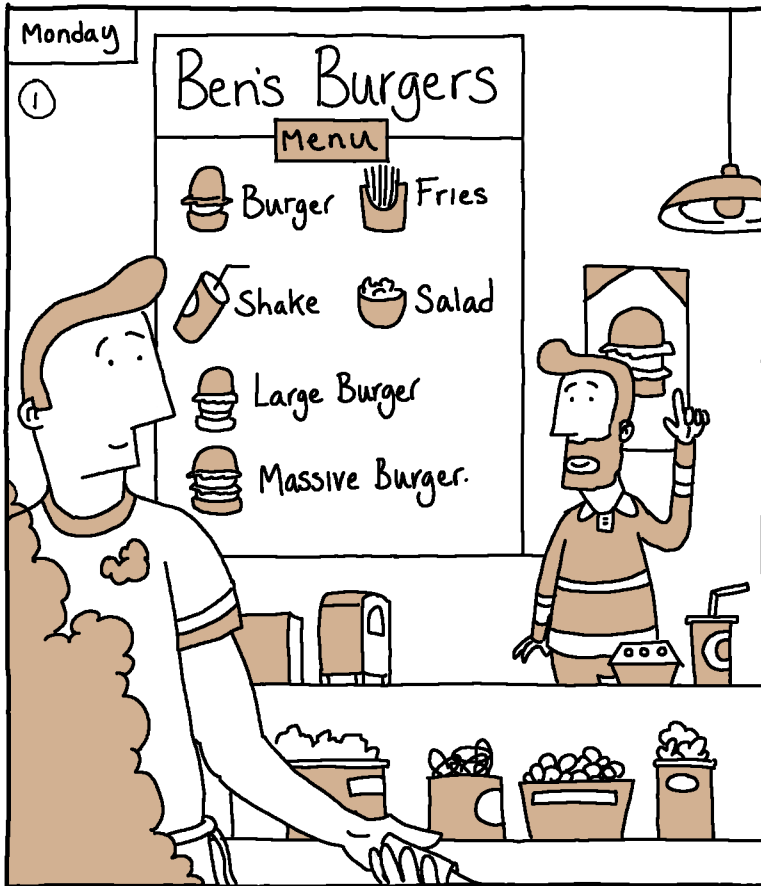 Monday
1
Ben's Burgers
Menu
Burger
Fries
Shake
Salad
Large Burger
Massive Burger.